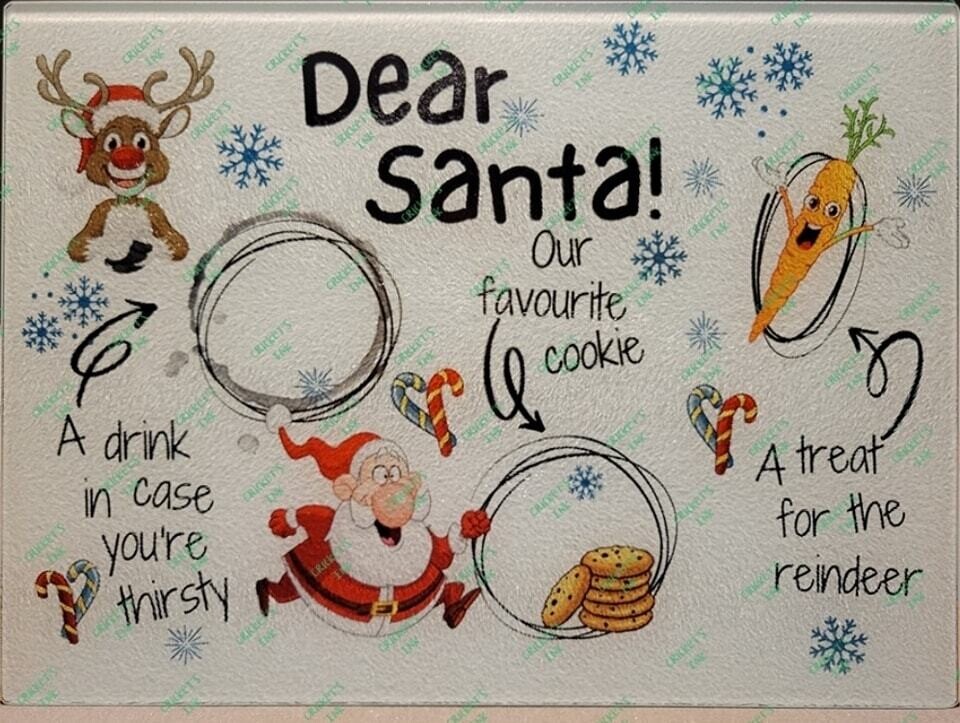 Dear
Santa!
Our
favourite
cookie
A drink
in case
you're
thirsty
A treat
for the
reindeer
CRICKET'S
INK